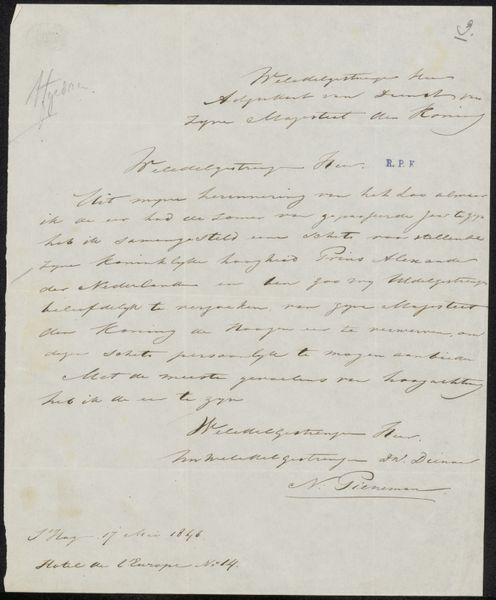 9.
Weledelgestrenge Heer
Adjudant van Dienst van
Zijne Majesteit den Koning
Weledelgestrenge Heer.
R.P.K
Uit mijne herinnering van het
ik de eer had de zomer van gepasseerde jaar te zijn
heb ik samengesteld een schets voorstellende
zijne Koninklijke hoogheid Prins Alexander
der Nederlanden en ben zoo vrij UEdelgestrenge
beleefdelijk te verzoeken, van zijne Majesteit
den Koning de Hooge eer te verwerven, om
deze schets persoonlijk te mogen aanbieden
Met de meeste gevoelens van hoogachting
heb ik de eer te zijn
Weledelgestrenge Heer.
UwWeledelgestrenge DW. Dienaar
N. Pieneman
S'Hag 17 Mei 1846
Hotel de l'Europe No. 14.